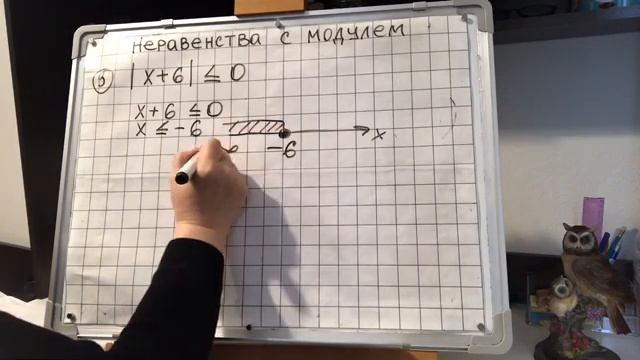 неравенства с модулем
в) |x+6| ≤ 0
x+6 ≤ 0
x ≤ -6
x
-6